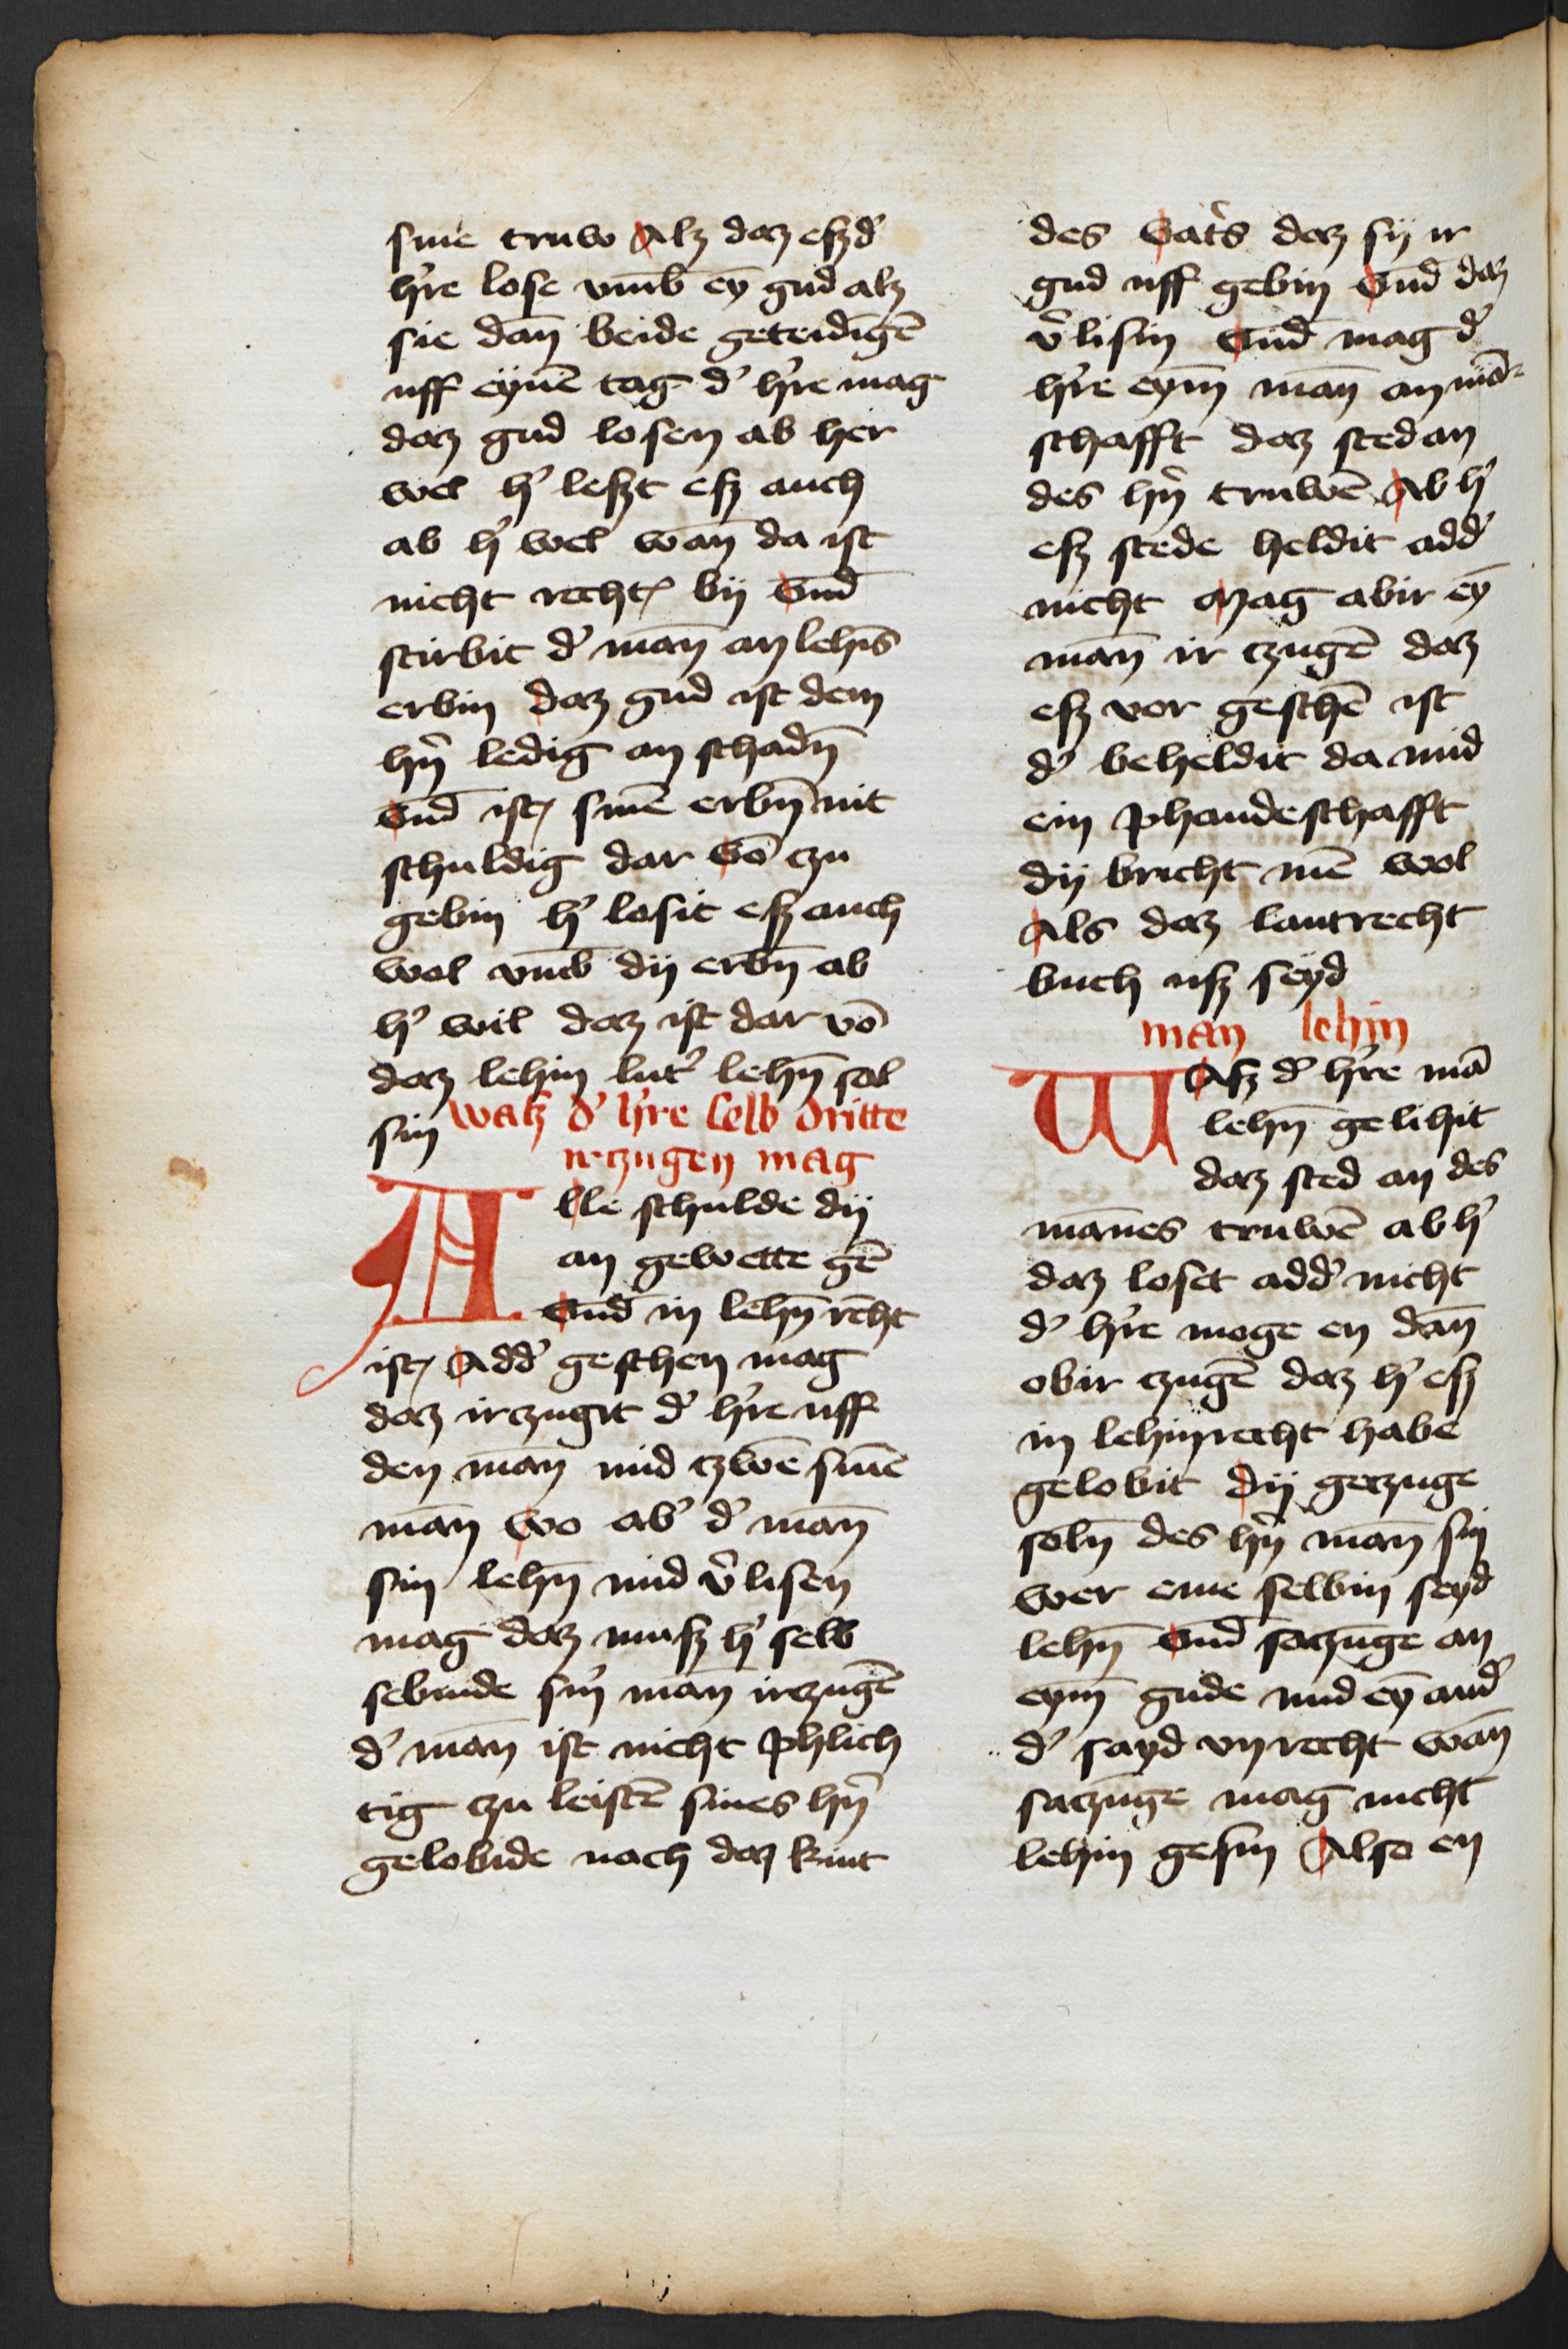 sine truw Alz daz eßz d'
h're lose vm̄b ey̅ gud alz
sie dan̄ beide geteidigē
uff eÿnē tag d' h're mag
daz gud losen ab her
wel h' leßzt eßz auch
ab h' wel wan̄ da ist
nicht recht bÿ Vnd̄
stirbit d' man̄ an lehīs
erbin daz gud ist dem
hn̄' ledig an schadn̄
Vnd̄ ist sinē erbn̄ nit
schuldig dar Vō czu
gebin h' losit eßz auch
wol vm̄b dÿ erbn̄ ab
h' wil daz ist dar vō
daz lehin lut' lehn̄ sol
sin waß d' h're selb dritte
irczugen mag
Alle schulde dÿ
an gewette gē
Vnd̄ in lehn̄ rēcht
ist Add' geschen mag
daz irzugit d' h're uff
den man̄ mid czwē sinē
man̄ wo ab' d' man̄
sin lehn̄ mid v'lisen
mag daz muß h' selb
sebinde sin' man̄ irczugē
d' man̄ ist nicht phlich
tig czu leistē sines hn̄'
gelobide nach daz kint
des Vat's daz sÿ ir
gud uff gebin Vnd̄ daz
v'lisin Vnd̄ mag d'
h're eym̄ man̄ an mā-
schafft daz sted an
des hn̄' truwē Ab h'
eßz stede heldit add'
nicht Mag abir ey̅
man̄ ir czugē daz
eßz vor geschē ist
d' beheldit da mid
ein phandeschafft
dÿ bricht mē wol
Als daz lantrecht
buch uß seÿd
man lehin
Waß d' h're mā
lehn̄ gelihit
daz sted an des
man̄es truwē ab h'
daz loset add' nicht
d' h're moge en dan̄
obir czugē daz h' eßz
in lehinrecht habe
gelobit dÿ geczuge
soln̄ des hn̄' man̄ sin
wer eme selbin seyd
lehn̄ Vnd̄ saczūge an
eym̄ gude mid ey̅ and'
d' sayd vnrecht wan̄
saczūge mag nicht
lehin gesin Also en